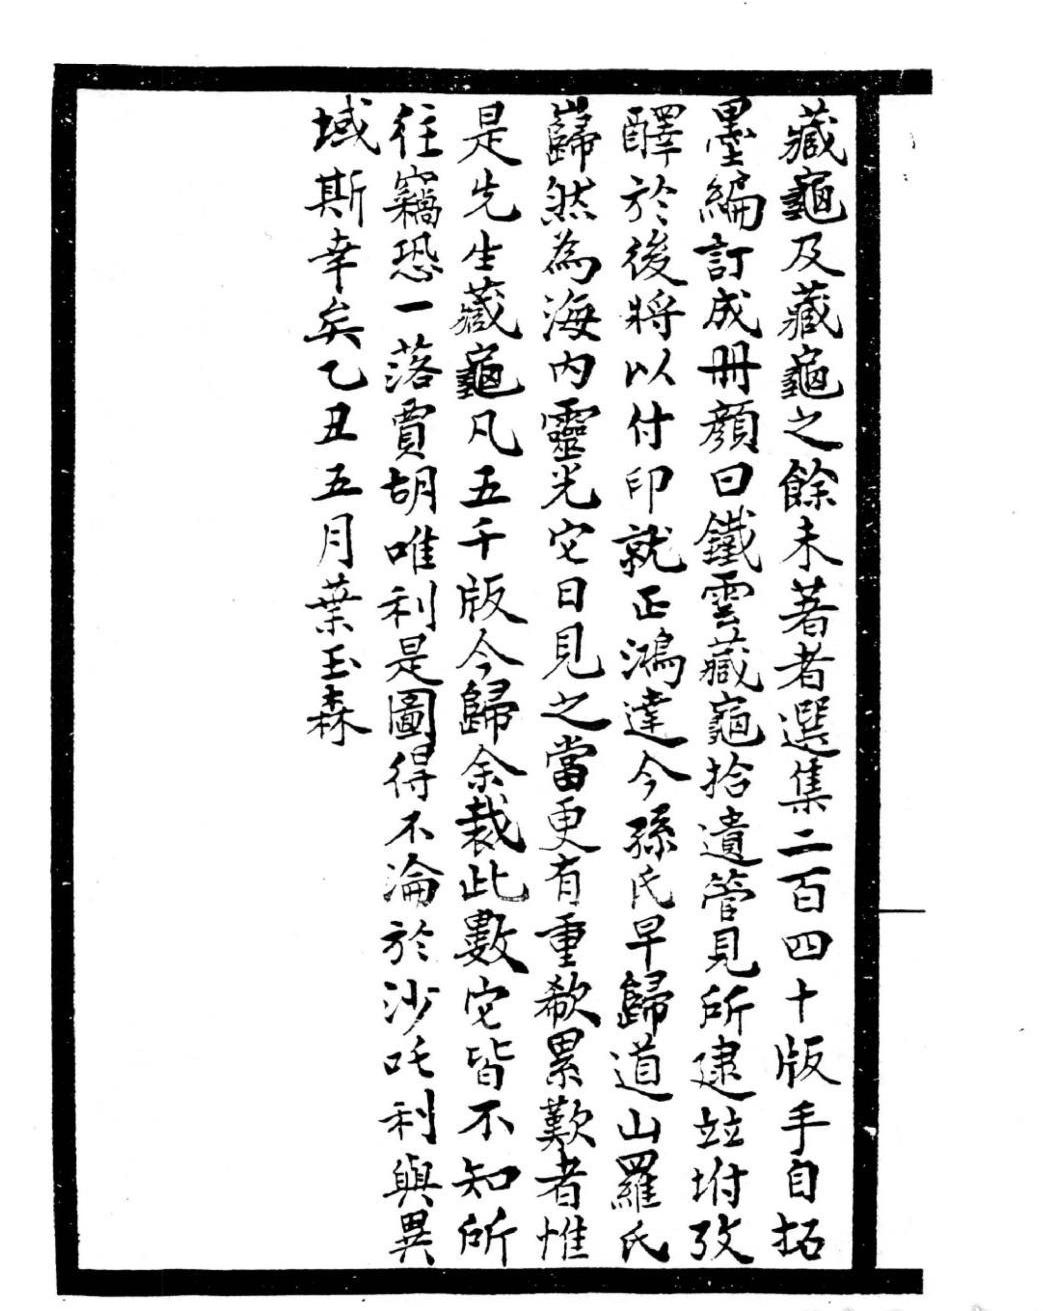 藏龜及藏龜之餘未著者選集二百四十版手自拓
墨編訂成冊顏曰鐵雲藏龜拾遺管見所逮竝坿攷
醳於後將以付印就正鴻達今孫氏早歸道山羅氏
巋然為海內靈光它日見之當更有重欷累歎者惟
是先生藏龜凡五千版今歸余裁此數它皆不知所
往竊恐一落賈胡唯利是圖得不淪於沙吒利與異
域斯幸矣乙丑五月葉玉森